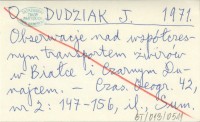 O. DUDZIAK J. 1971.
Obserwacje nad współczes-
nym transportem żwirów
w Białce i Czarnym Du-
najcem. – Czas. Geogr. 42,
nr 2: 147-156, il., Sum.
BT/019/051